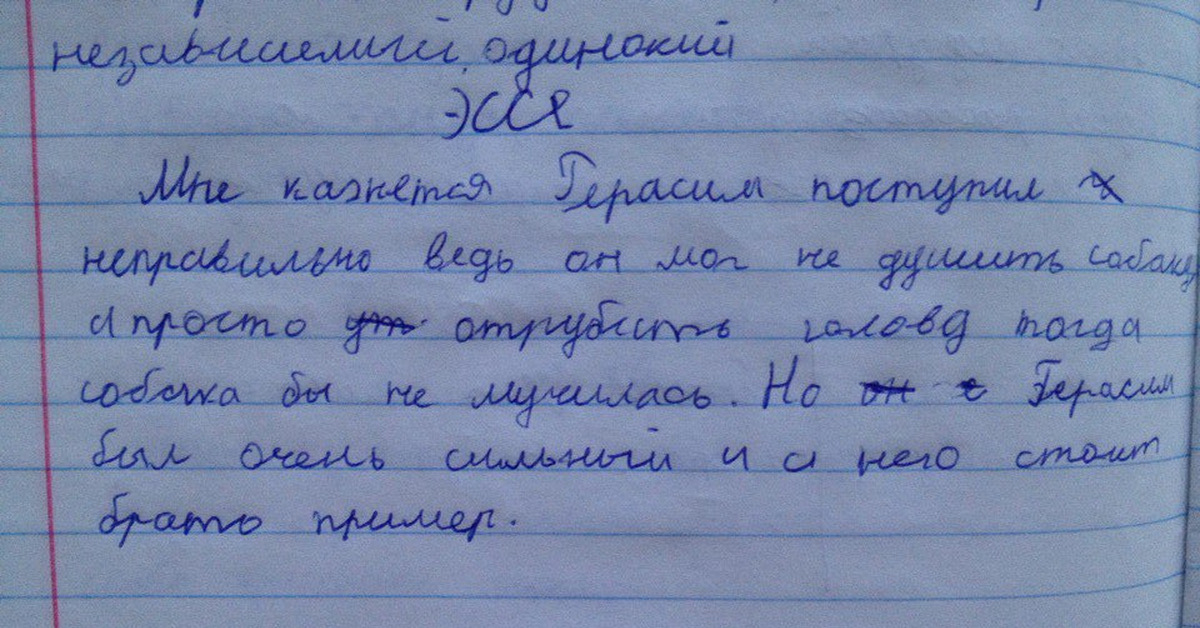 независимый, одинокий
Эссе
Мне кажется Герасим поступил
неправильно ведь он мог не душить собаку
а просто отрубить голову тогда
собака бы не мучилась. Но Герасим
был очень сильный и с него стоит
брать пример.